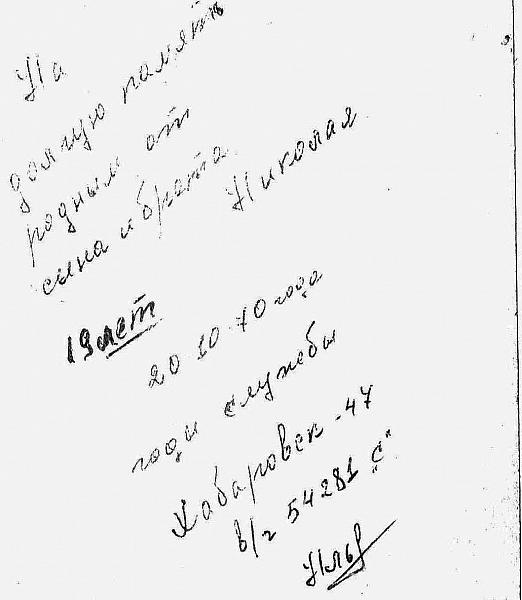 На
долгую память
родным от
сына и брата
Николая
19 лет
20 10 70 года
годы службы
Хабаровск - 47
в/ч 54281 "С"